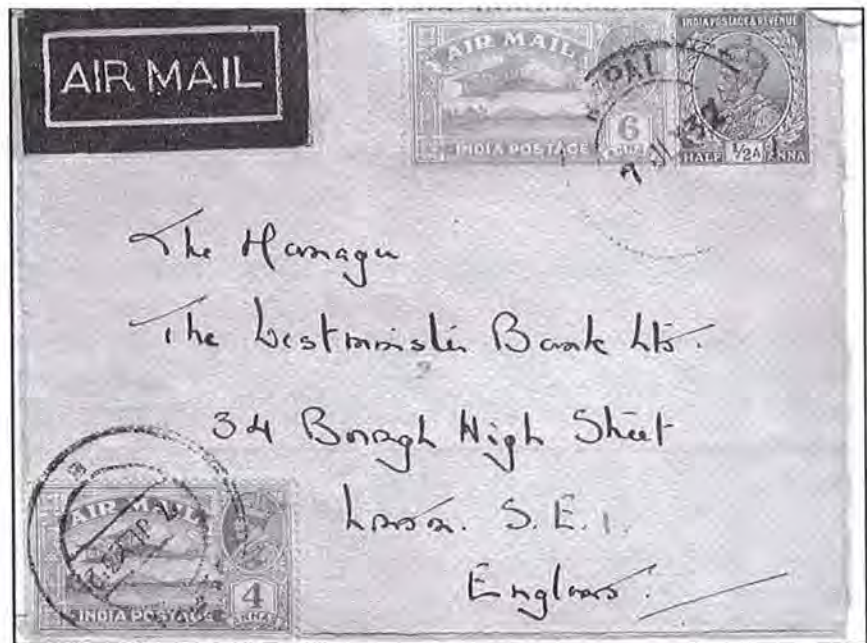 AIR MAIL
AIR MAIL
6
INDIA POSTAGE
INDIA POSTAGE & REVENUE
HALF 1/2A ANNA
PAL
32
The Manager
The Westminster Bank Ltd.
34 Borough High Street
London. S.E.1.
England.
AIR MAIL
4
INDIA POSTAGE